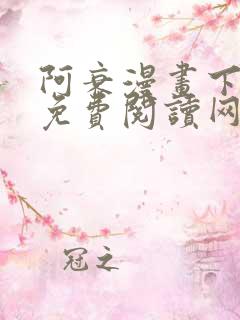 阿衰漫畫下
免費閱讀网
冠之